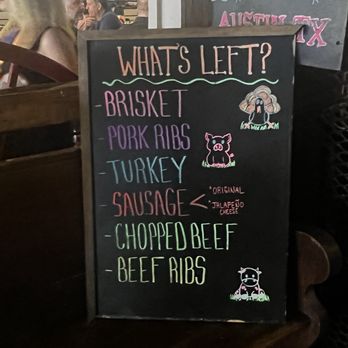 AUSTIN, TX
WHAT'S LEFT?
- BRISKET
- PORK RIBS
- TURKEY
- SAUSAGE < * ORIGINAL
* JALAPEÑO CHEESE
- CHOPPED BEEF
- BEEF RIBS